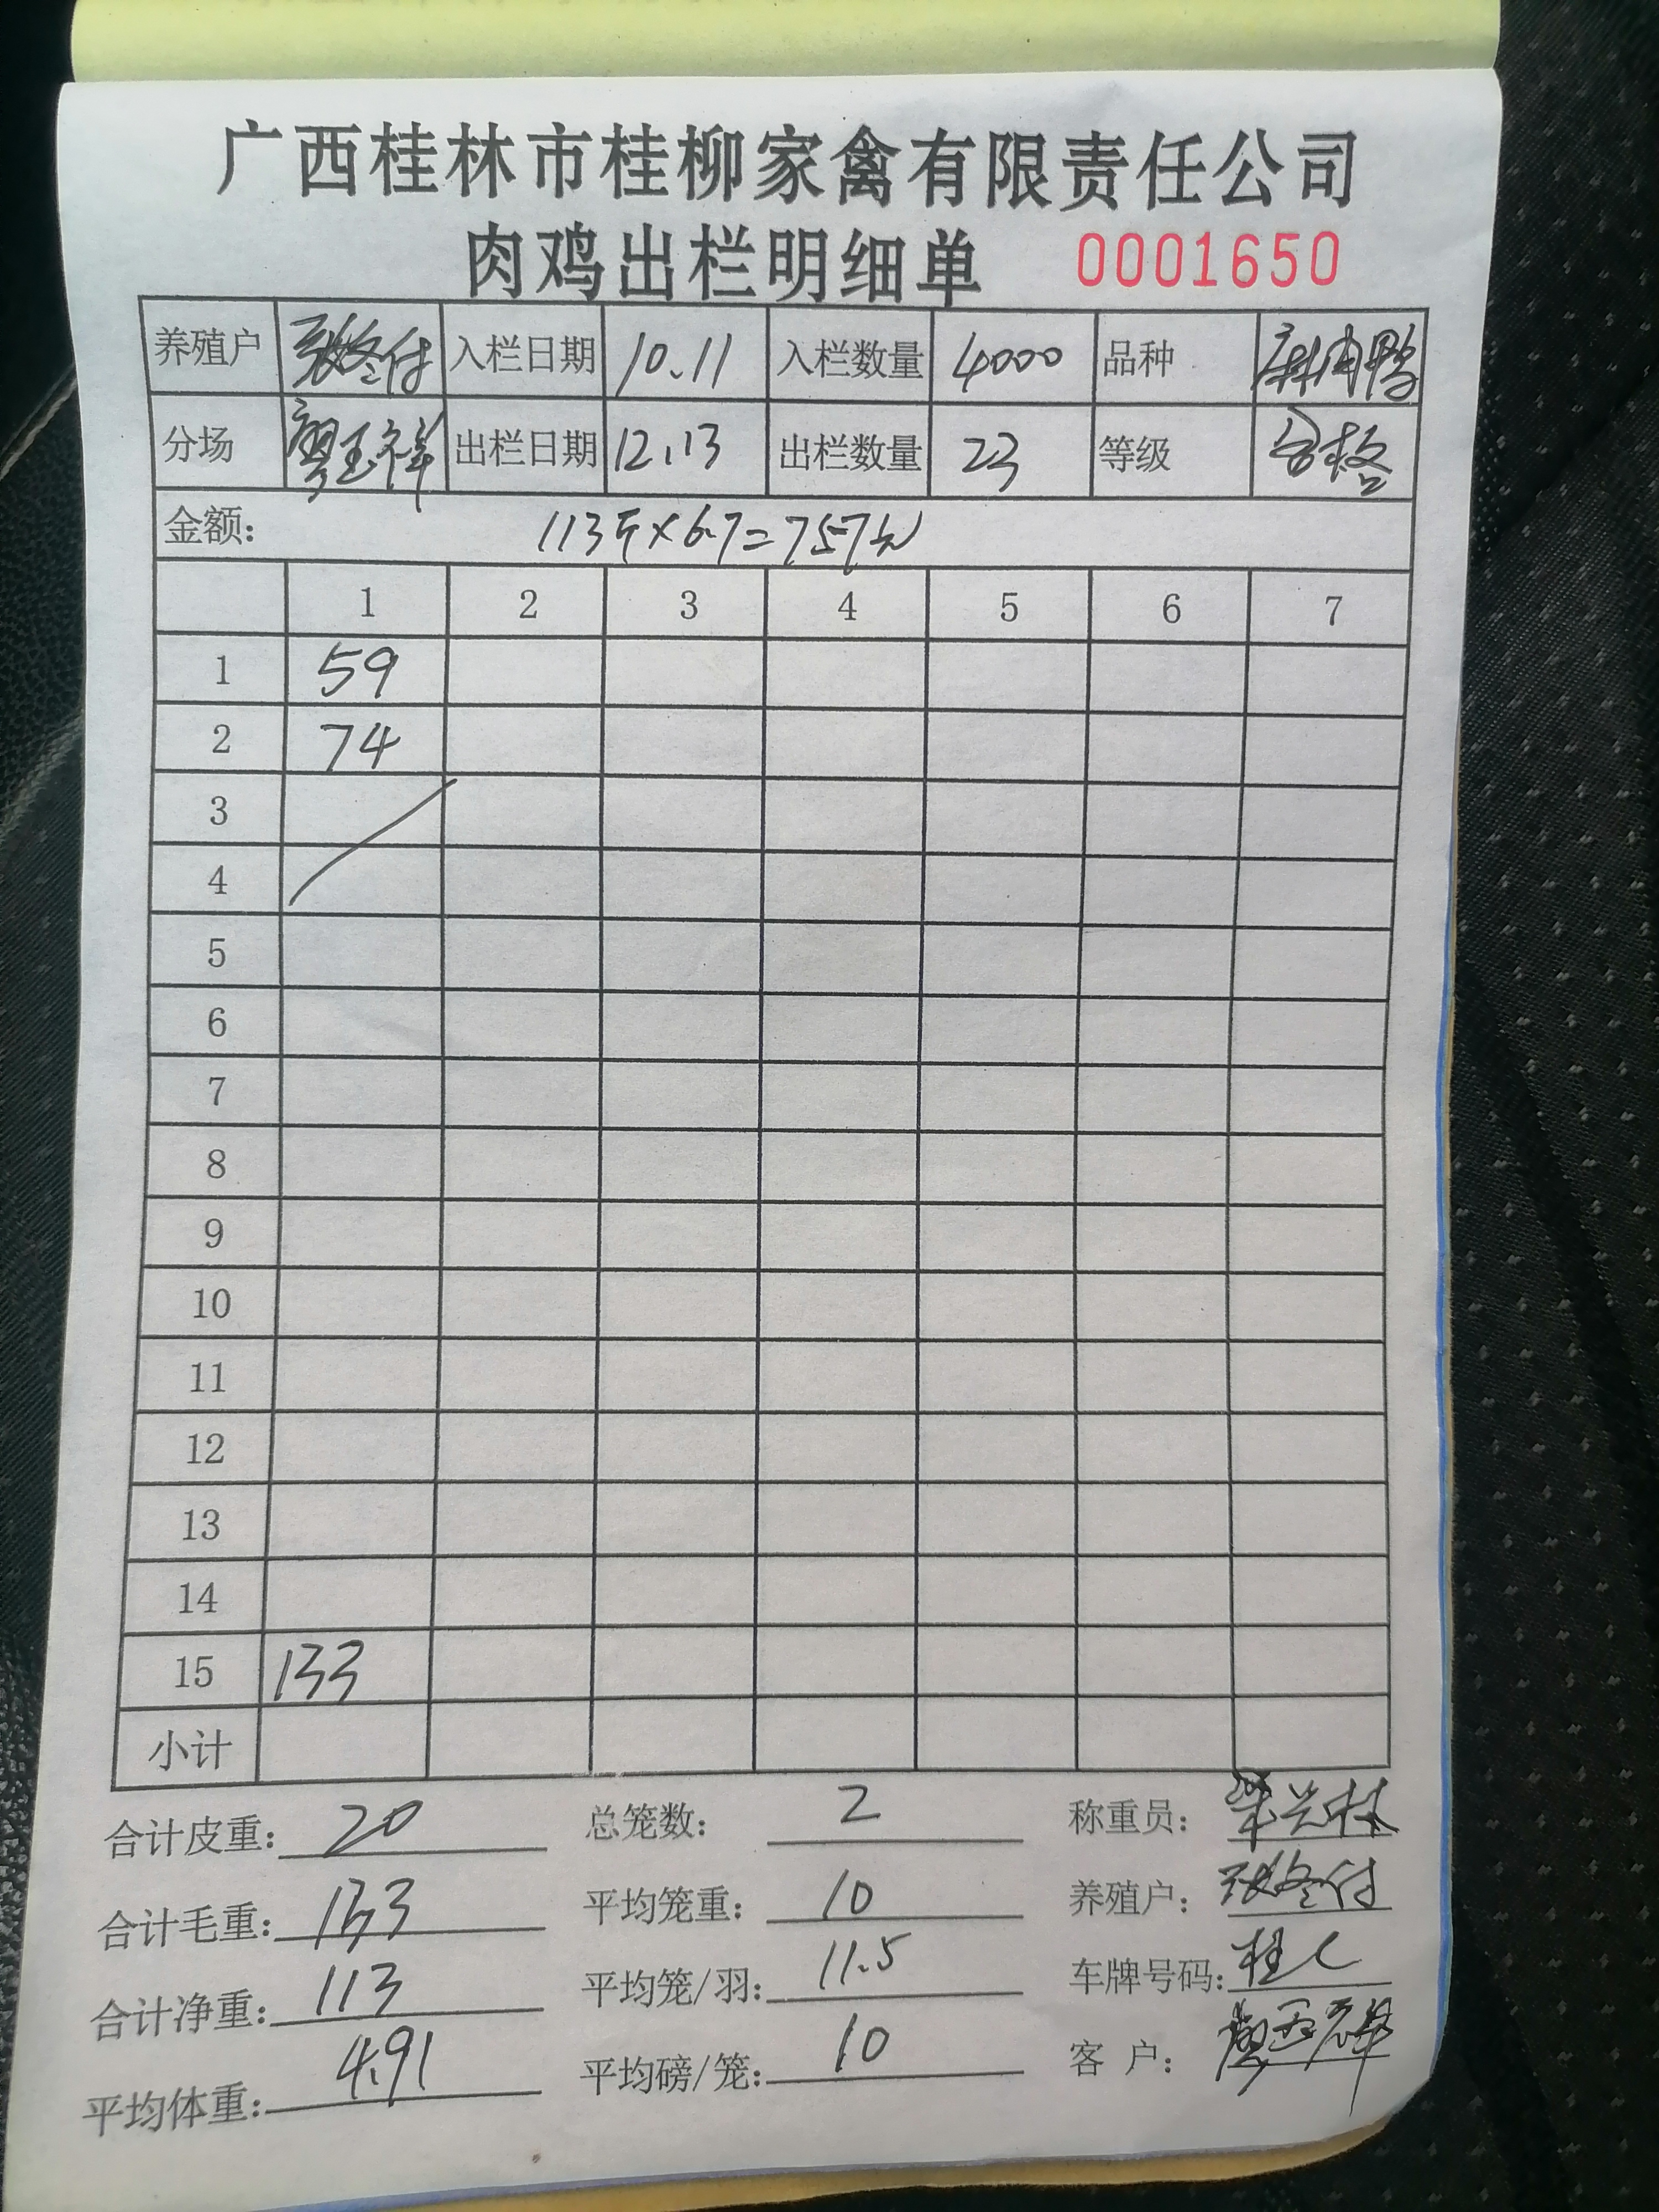 广西桂林市桂柳家禽有限责任公司
肉鸡出栏明细单 0001650
养殖户 张冬付 入栏日期 10.11 入栏数量 4000 品种 麻肉鸭
分场 廖玉祥 出栏日期 12.13 出栏数量 23 等级 合格
金额: 113斤×6.7=757元
1 2 3 4 5 6 7
1 59
2 74
3
4
5
6
7
8
9
10
11
12
13
14
15 133
小计
合计皮重: 20 总笼数: 2 称重员: 梁兴林
合计毛重: 133 平均笼重: 10 养殖户: 张冬付
合计净重: 113 平均笼/羽: 11.5 车牌号码: 桂C
平均体重: 4.91 平均磅/笼: 10 客户: 廖玉祥